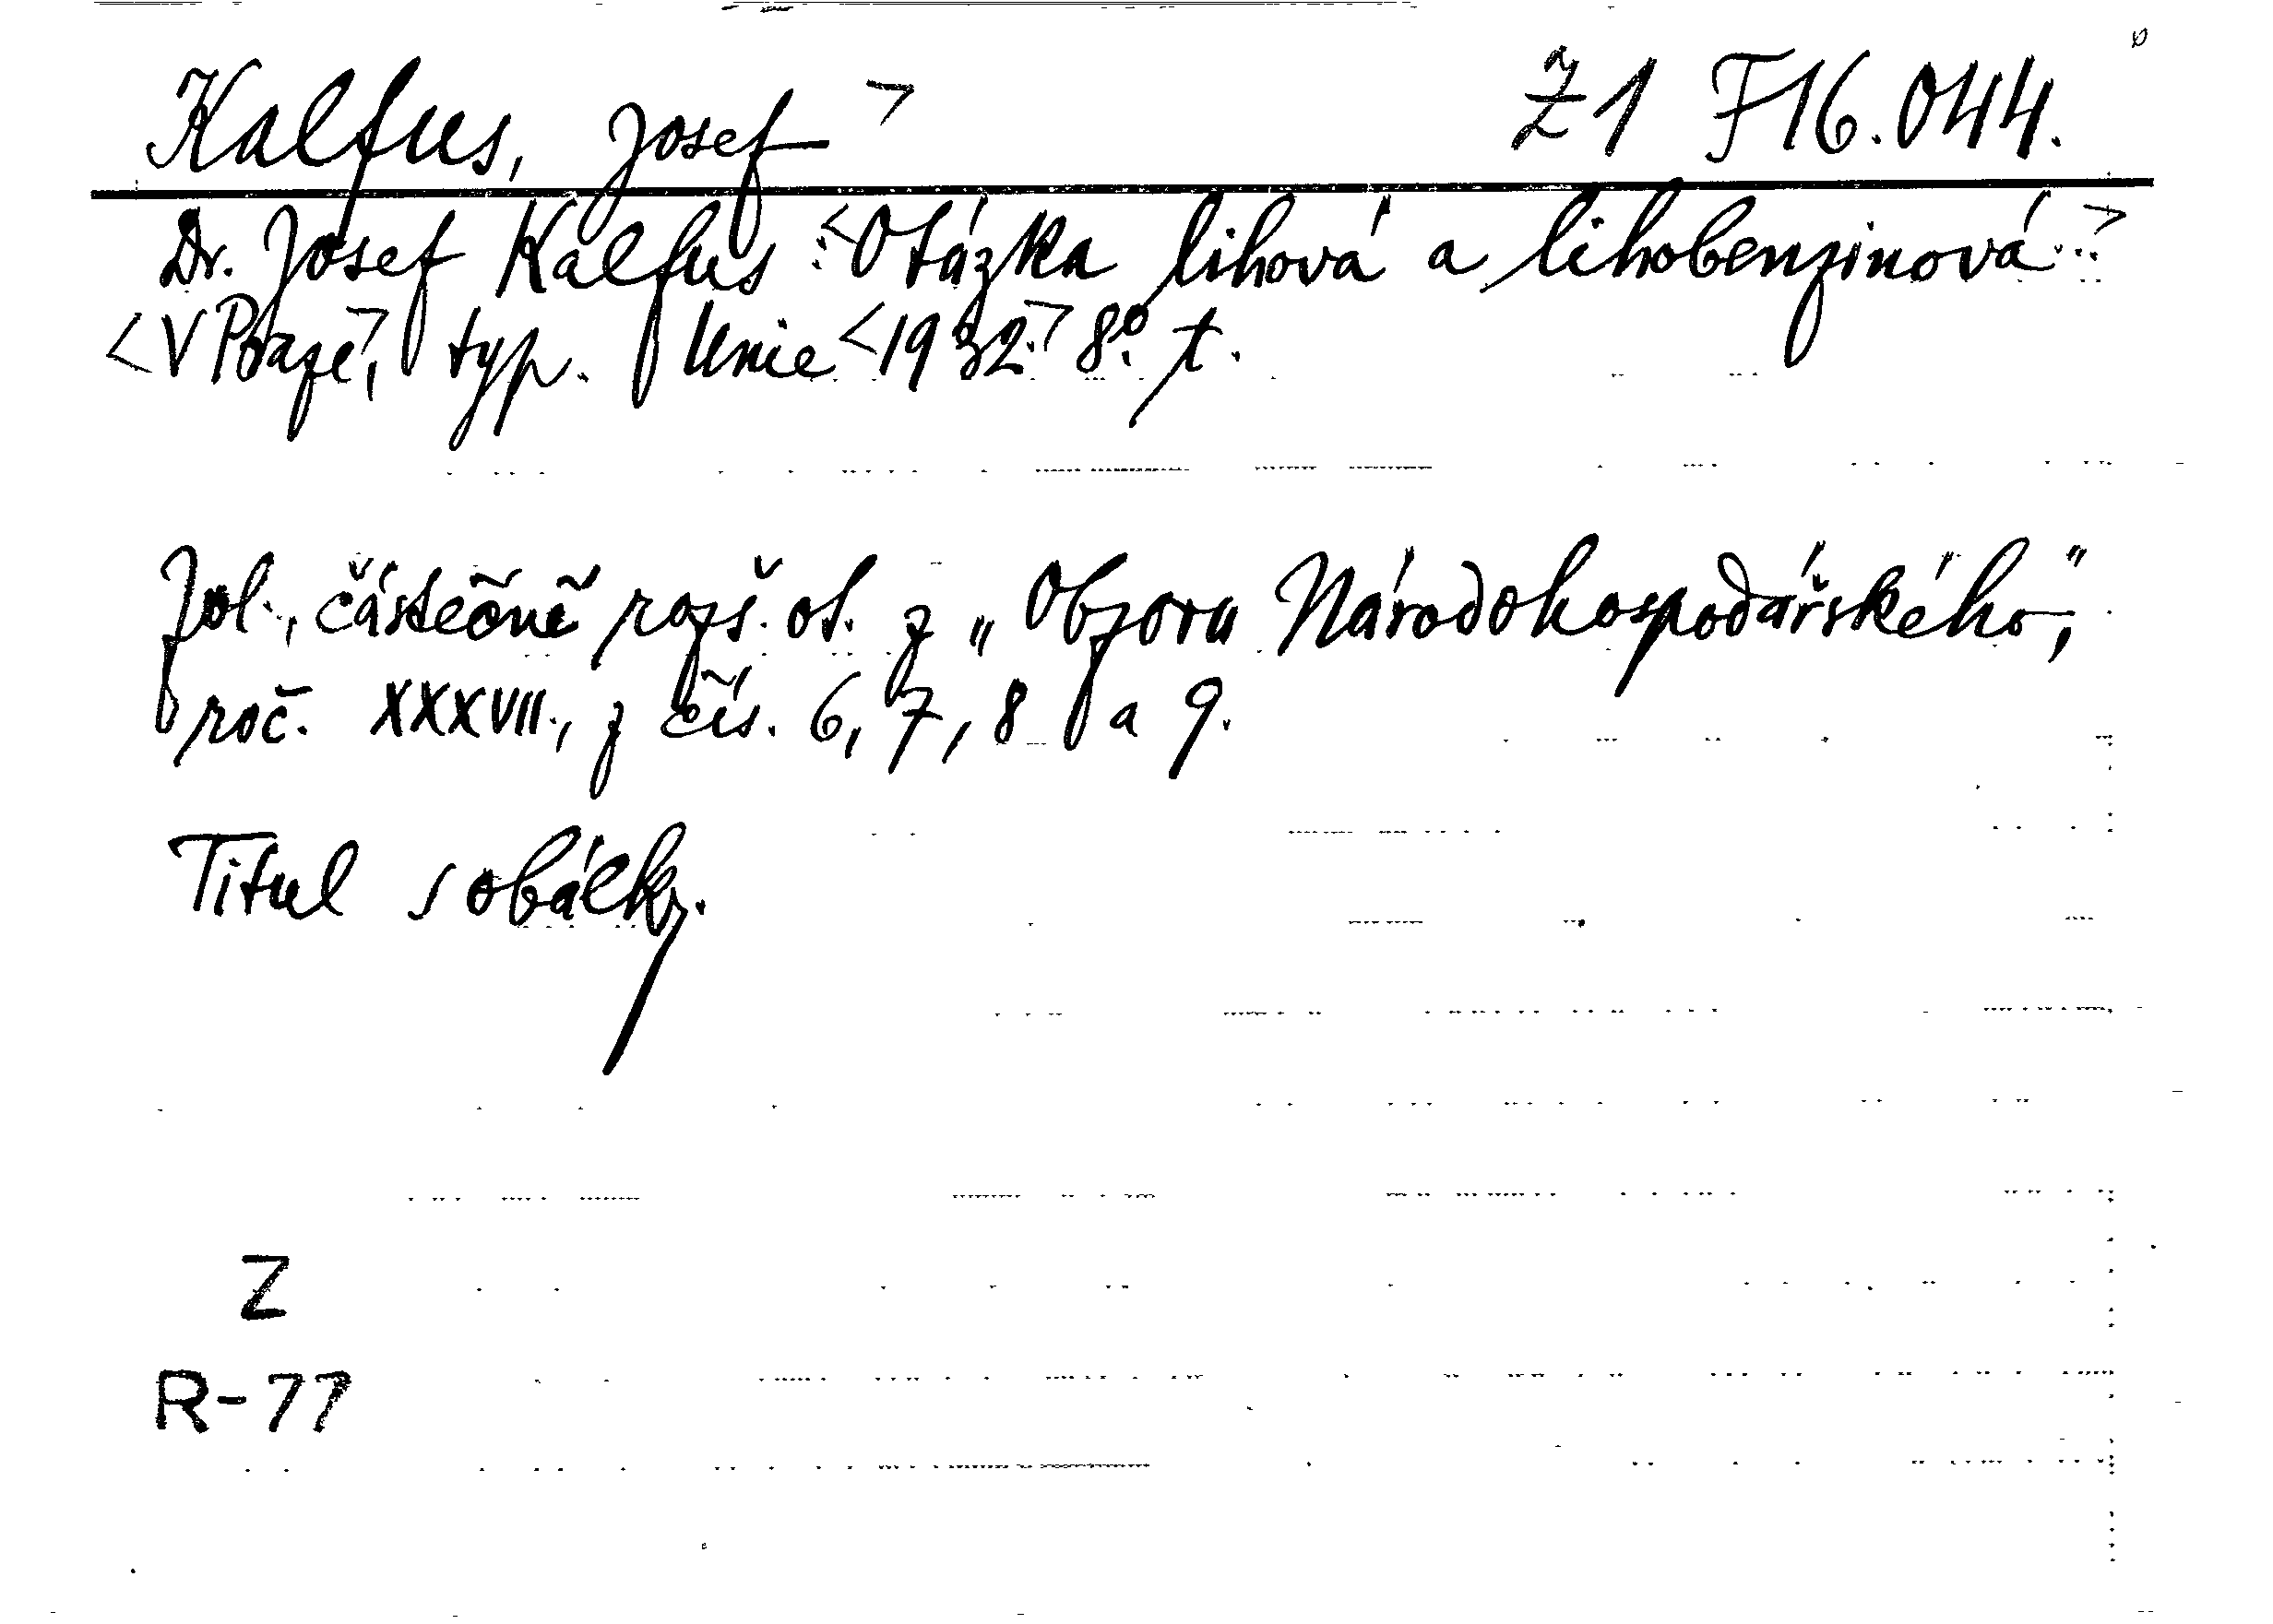 Kalfus, Josef > Ž1 F16.044.
Dr. Josef Kalfus :<Otázka lihová a lihobenzinová.>
<V Praze,> typ. Unie <1932.> 8°. t.
Zvl., částečně rozš. ot. z „Obzoru Národohospodářského,"
roč. XXXVII., z čís. 6, 7, 8 a 9.
Titul s obálky.
Z
R-77